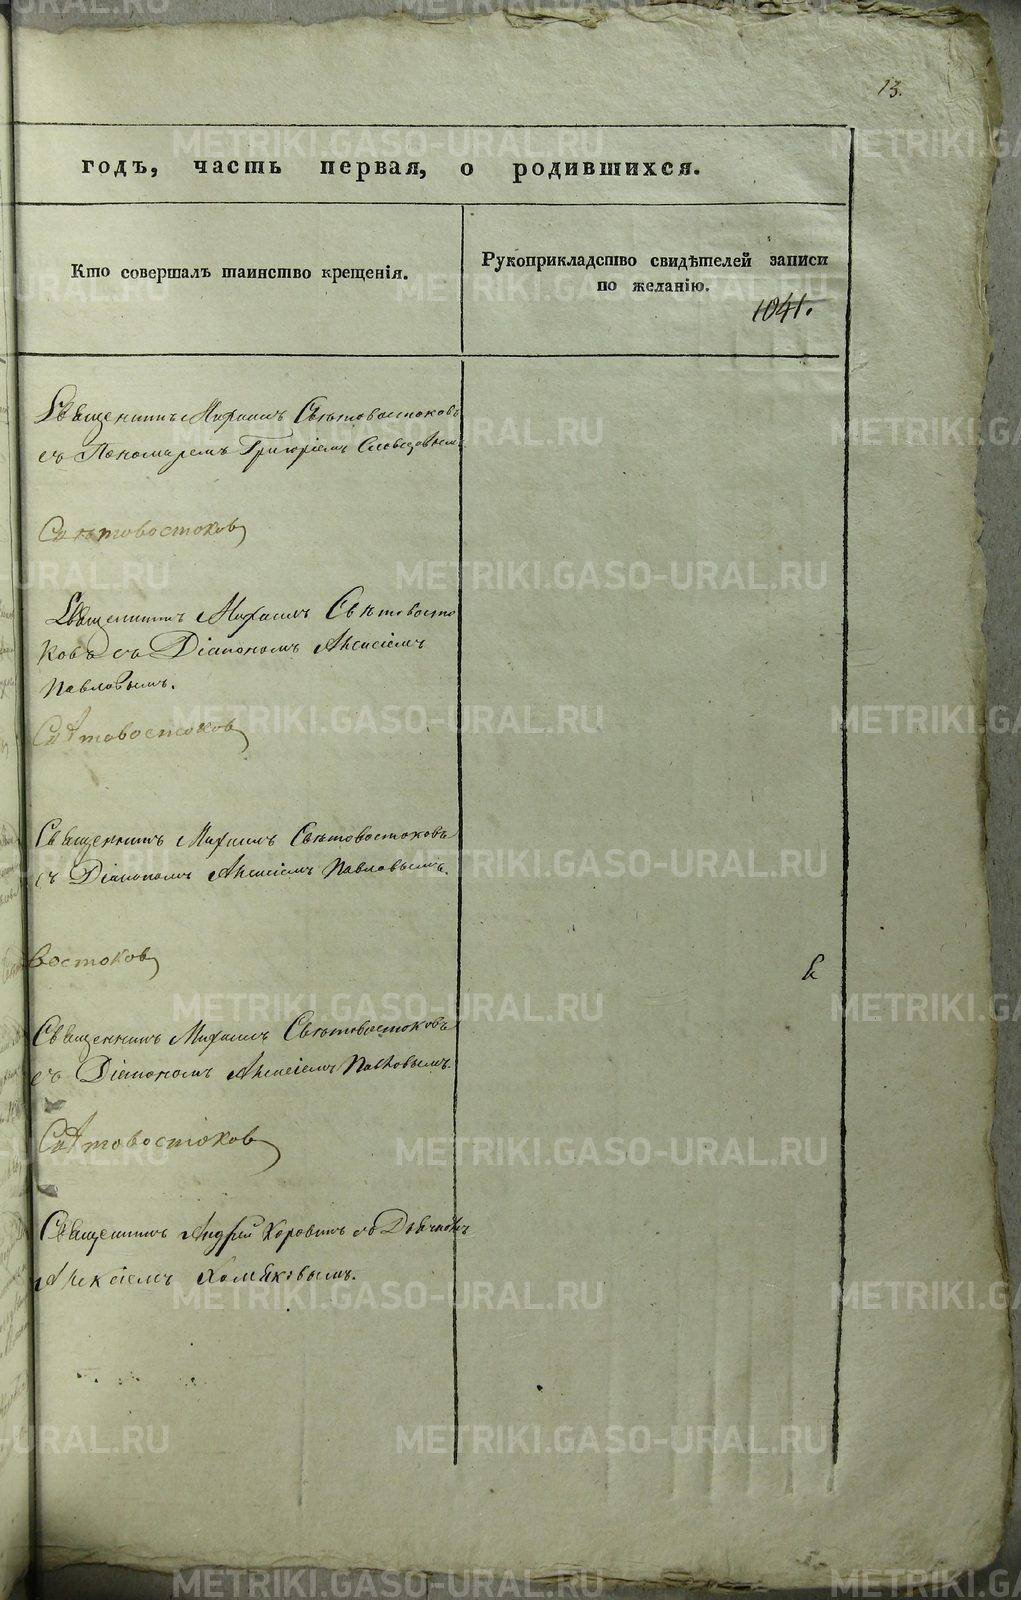 13.
годъ, часть первая, о родившихся.
Кто совершалъ таинство крещенія.
Рукоприкладство свидѣтелей записи
по желанію.
1041.
Священникъ Михаилъ Свѣтовостоковъ
съ Пономаремъ Григоріемъ
Свѣтовостоковъ
Священникъ Михаилъ Свѣтовосто
ковъ съ Діакономъ Алексіемъ
Павловымъ.
Свѣтовостоковъ
Священникъ Михаилъ Свѣтовостоковъ
съ Діакономъ Алексіемъ Павловымъ.
востоковъ
Священникъ Михаилъ Свѣтовостоковъ
съ Діакономъ Алексіемъ Павловымъ.
Свѣтовостоковъ
Священникъ Андрей Коровинъ съ Дьячкомъ
Алексіемъ Хомяковымъ.
METRIKI.GASO-URAL.RU